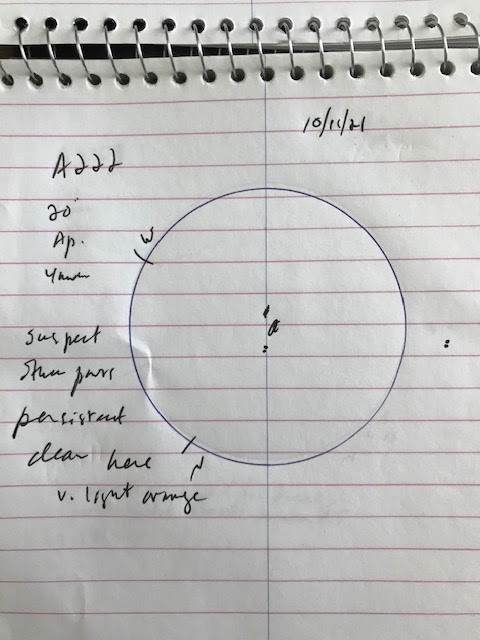 10/11/21
A222
20"
Ap.
W
a
suspect
persistent
clear here
N
v. light orange